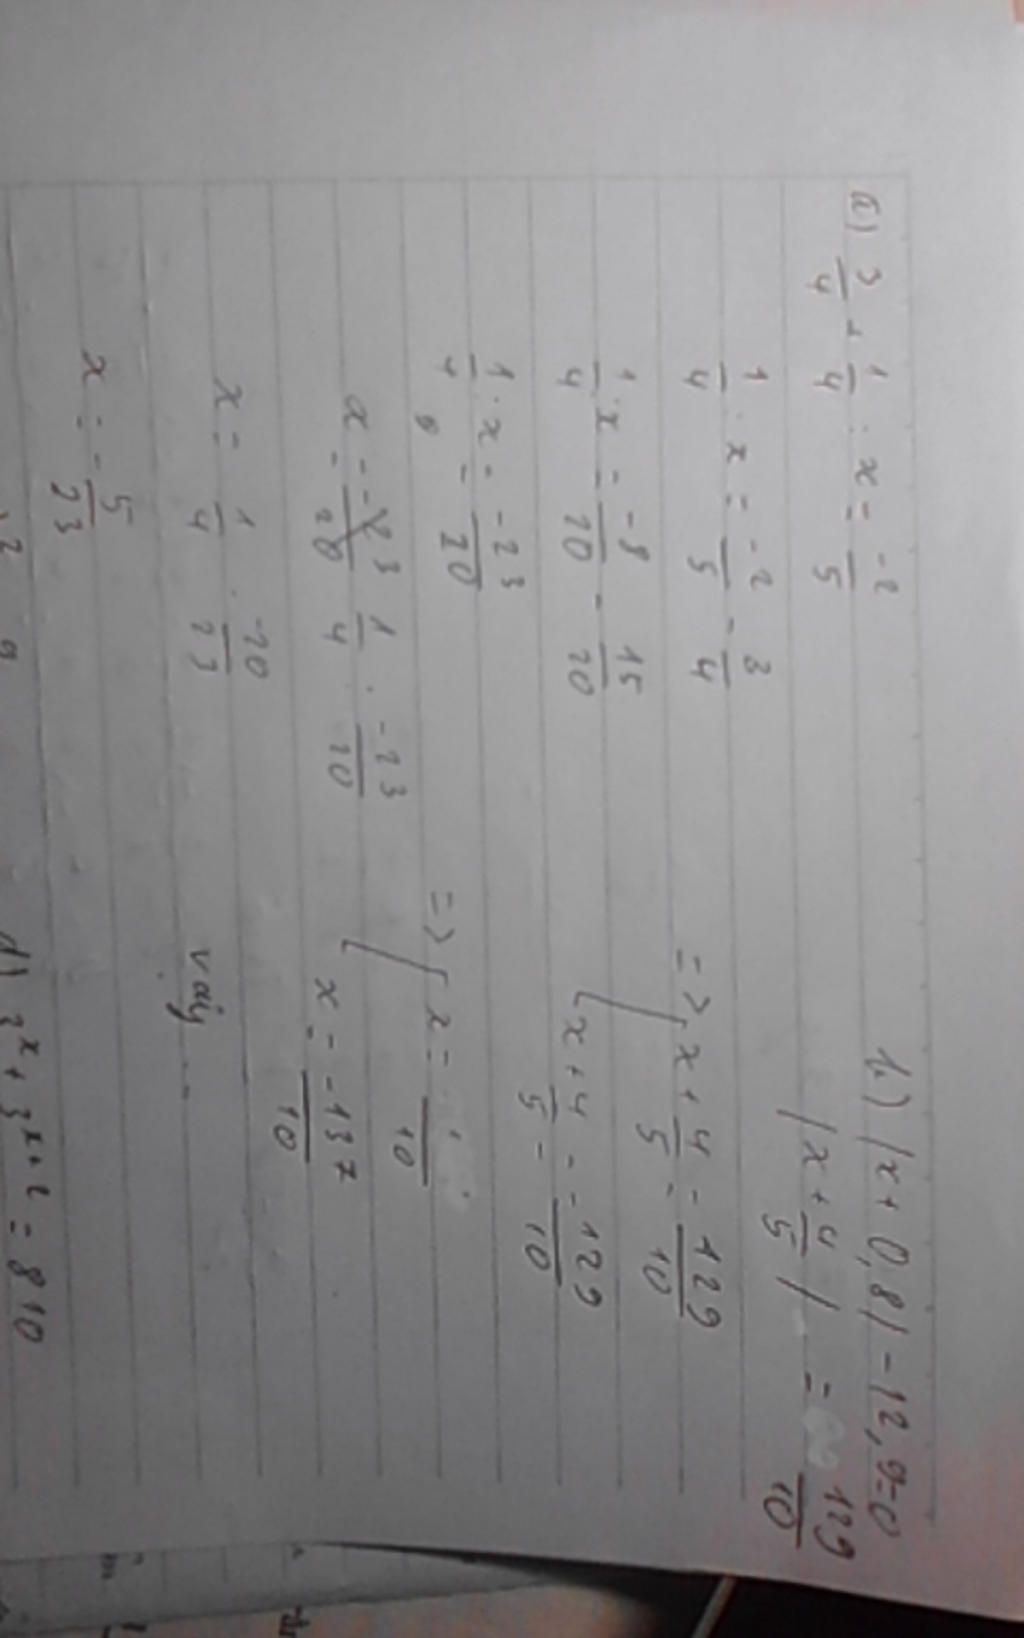 a) 3/4 + 1/4 : x = -2/5
1/4 : x = -2/5 - 3/4
1/4 : x = -8/20 - 15/20
1/4 : x = -23/20
x = 1/4 : -23/20
x = 1/4 . -20/23
x = -5/23
b) |x + 0,8| - 12,9 = 0
|x + 4/5| = 129/10
=> [ x + 4/5 = 129/10
x + 4/5 = -129/10
=> [ x = /10
x = -137/10
vậy ...
d) 3^x + 3^x+2 = 810